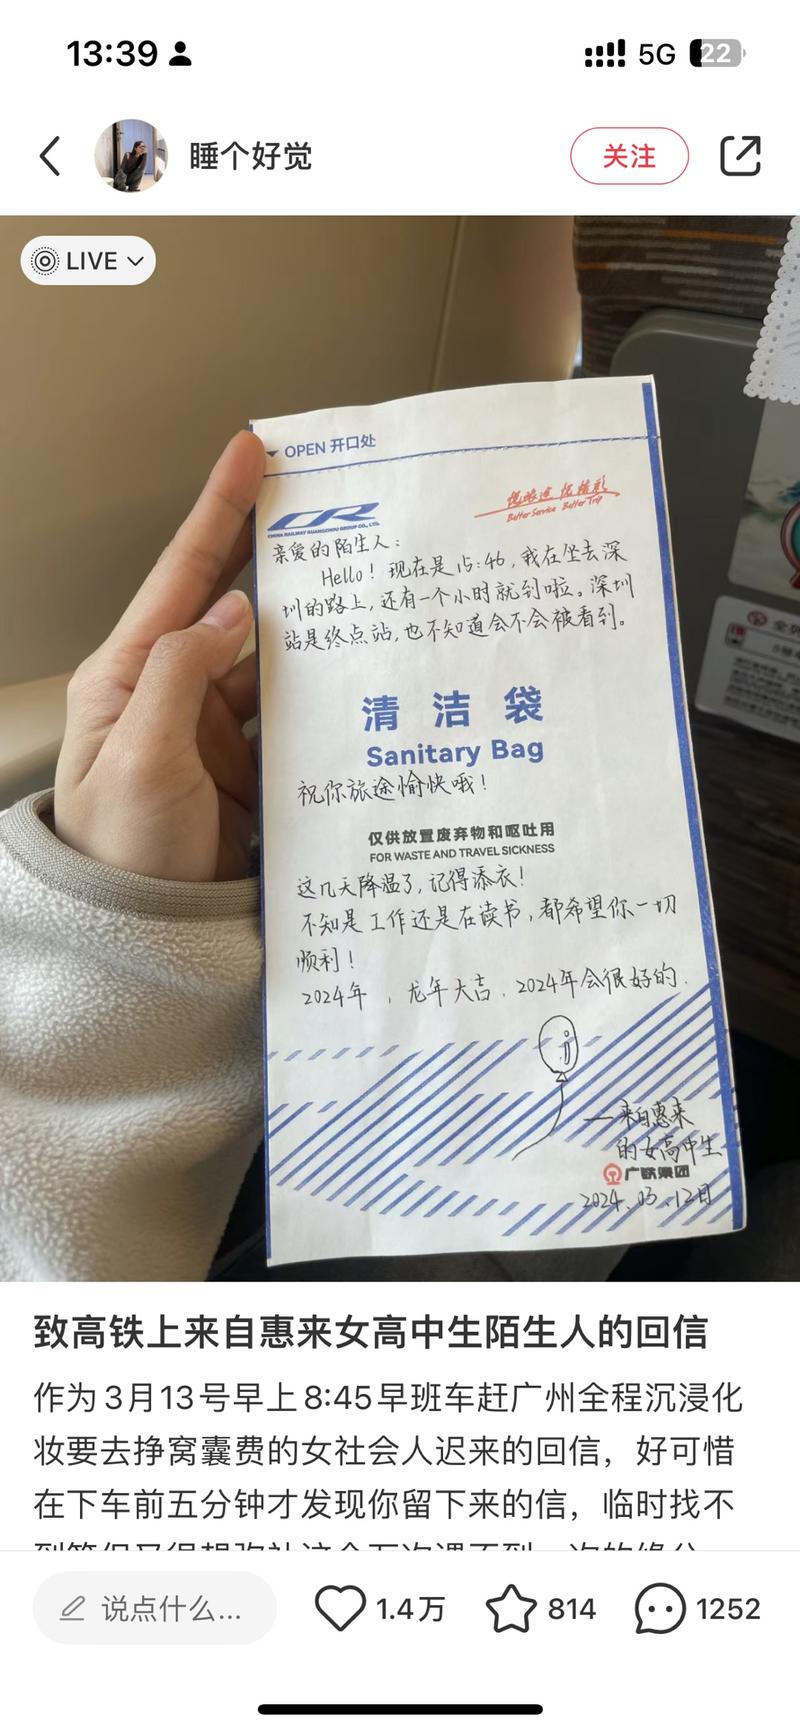 13:39
5G
22
睡个好觉
关注
LIVE
OPEN 开口处
CR
CHINA RAILWAY GUANGZHOU GROUP CO., LTD.
Better Service Better Trip
亲爱的陌生人：
Hello！现在是15:46，我在坐去深
圳的路上，还有一个小时就到啦。深圳
站是终点站，也不知道会不会被看到。
清洁袋
Sanitary Bag
祝你旅途愉快哦！
仅供放置废弃物和呕吐用
FOR WASTE AND TRAVEL SICKNESS
这几天降温了，记得添衣！
不知是工作还是在读书，都希望你一切
顺利！
2024年，龙年大吉．2024年会很好的．
—来自惠来
的女高中生
广铁集团
2024.03.12日
致高铁上来自惠来女高中生陌生人的回信
作为3月13号早上8:45早班车赶广州全程沉浸化
妆要去挣窝囊费的女社会人迟来的回信，好可惜
在下车前五分钟才发现你留下来的信，临时找不
说点什么...
1.4万
814
1252